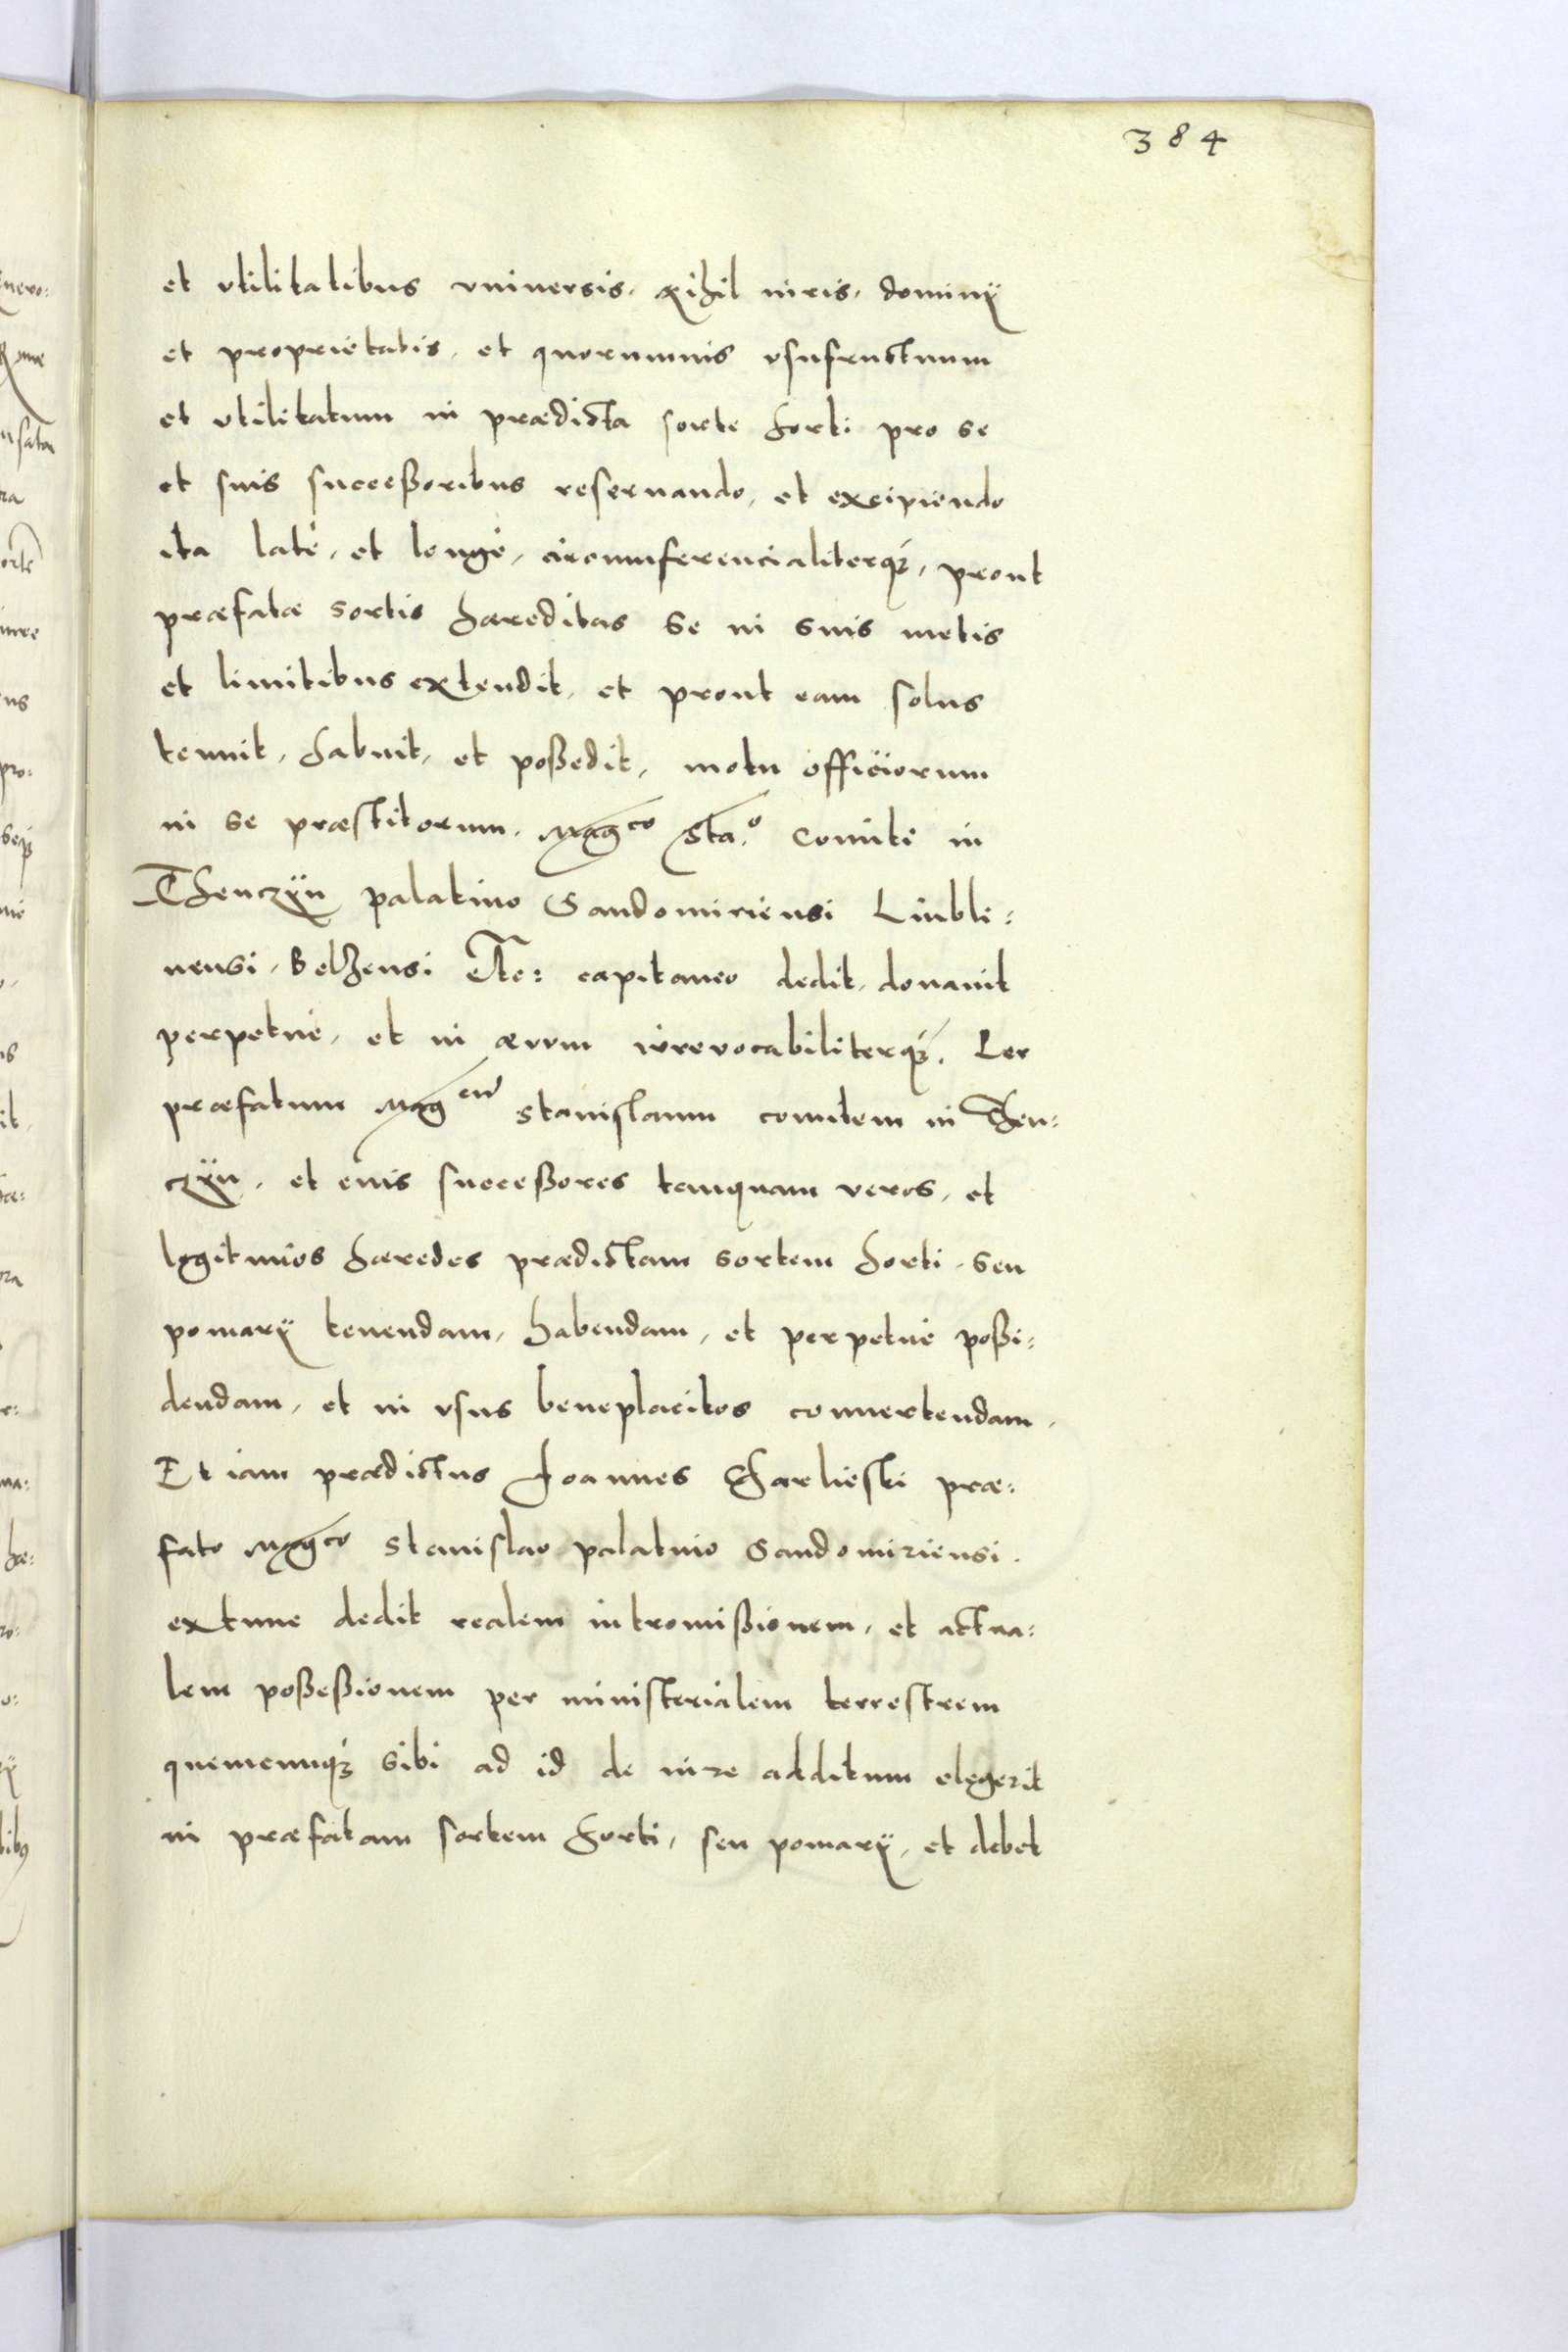 384
et vtilitatibus vniuersis. Nihil iuris, dominij
et proprietatis, et quorumuis vsufructuum
et vtilitatum in prædicta sorte horti pro se
et suis successoribus reseruando, et excipiendo
ita latè, et longè, circumferencialiterq́ue, prout
præfatæ sortis hæreditas se in suis metis
et limitibus extendit, et prout eam solus
tenuit, habuit, et possedit, motu officiorum
in se præstitorum. Magco Sta.o Comiti in
Thenczÿn palatino Sandomiriensi Liubli:
nensi, Belzensi Etc: capitaneo dedit, donauit
perpetuè, et in æuum irreuocabiliterq́ue. Per
præfatum Magcum Stanislaum comitem in Then:
czÿn, et euis successores tanquam veros, et
legitimos hæredes prædictam sortem horti, seu
pomarij tenendam, habendam, et perpetuè possi:
dendam, et in vsus beneplacitos conuertendam.
Et iam prædictus Joannes Charlieski præ:
fato Magco Stanislao palatino Sandomiriensi.
extunc dedit realem intromissionem, et actua:
lem possessionem per ministerialem terrestrem
quemcunq́ue sibi ad id de iure additum elegerit
in præfatam sortem horti, seu pomarij, et debet